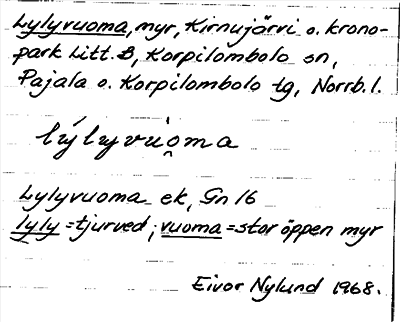 Lylyvuoma, myr, Kirnujärvi o. krono-
park Litt. B, Korpilombolo sn,
Pajala o. Korpilombolo tg, Norrb. l.
lýlyvuo̯ma
Lylyvuoma ek, Gn 16
lyly = tjurved; vuoma = stor öppen myr
Eivor Nylund 1968.